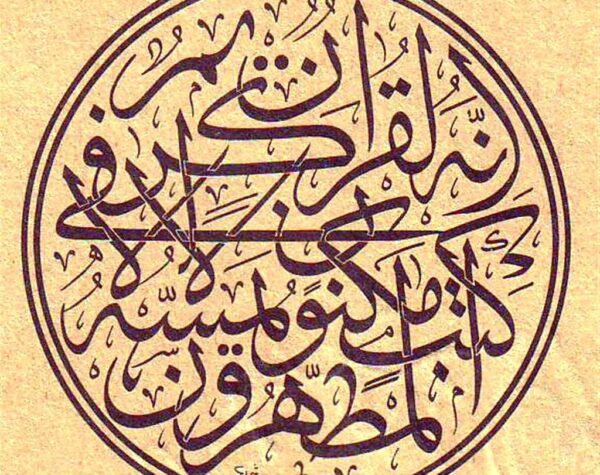 انّه لقران كريم فى
كتب مكنون لا يمسّه الا
المطهّرون